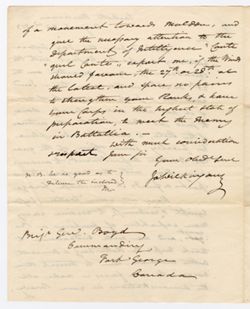 of a movement towards Malden, and
give the necessary attention to the
department of Intelligence "Coute
qui Coute", expect me, if the Winds
should favour, the 27th or 28th at
the latest, and spare no pains
to strengthen your flanks, & have
your Corps, in the highest state of
preparation, to meet the Enemy
in Battallia. —
With much consideration
& respect I am Sir
Your Obdt Servt
Ja Wilkinson
N.B. be so good as to
deliver the inclosed
Brigr Genl. Boyd
Commanding
Fort George
Canada